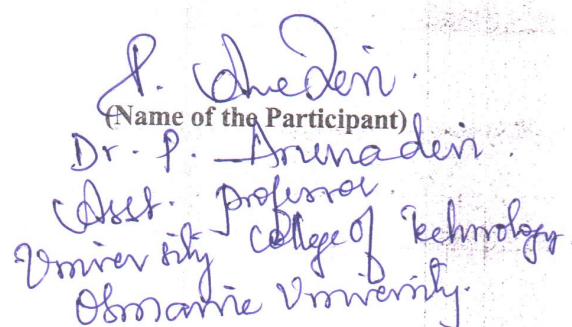 (Name of the Participant)
Dr. P. Arunadevi.
Asst. professor.
University College of Technology
Osmania University.